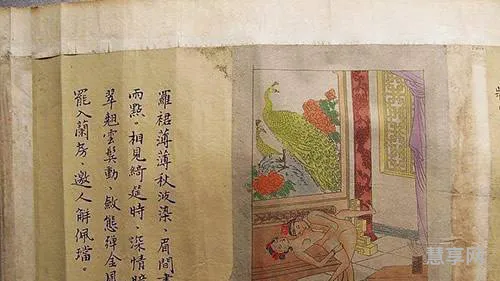 羅裙薄薄秋波染。眉間畫
兩點。相見綺筵時。深情暗
翠翹雲鬢動。斂態彈金鳳
罷入蘭房。邀人解佩璫。
慧享网